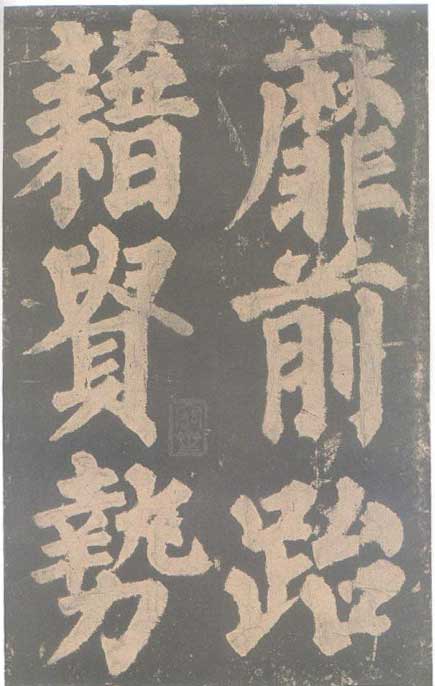 靡前跆
藉貴勢